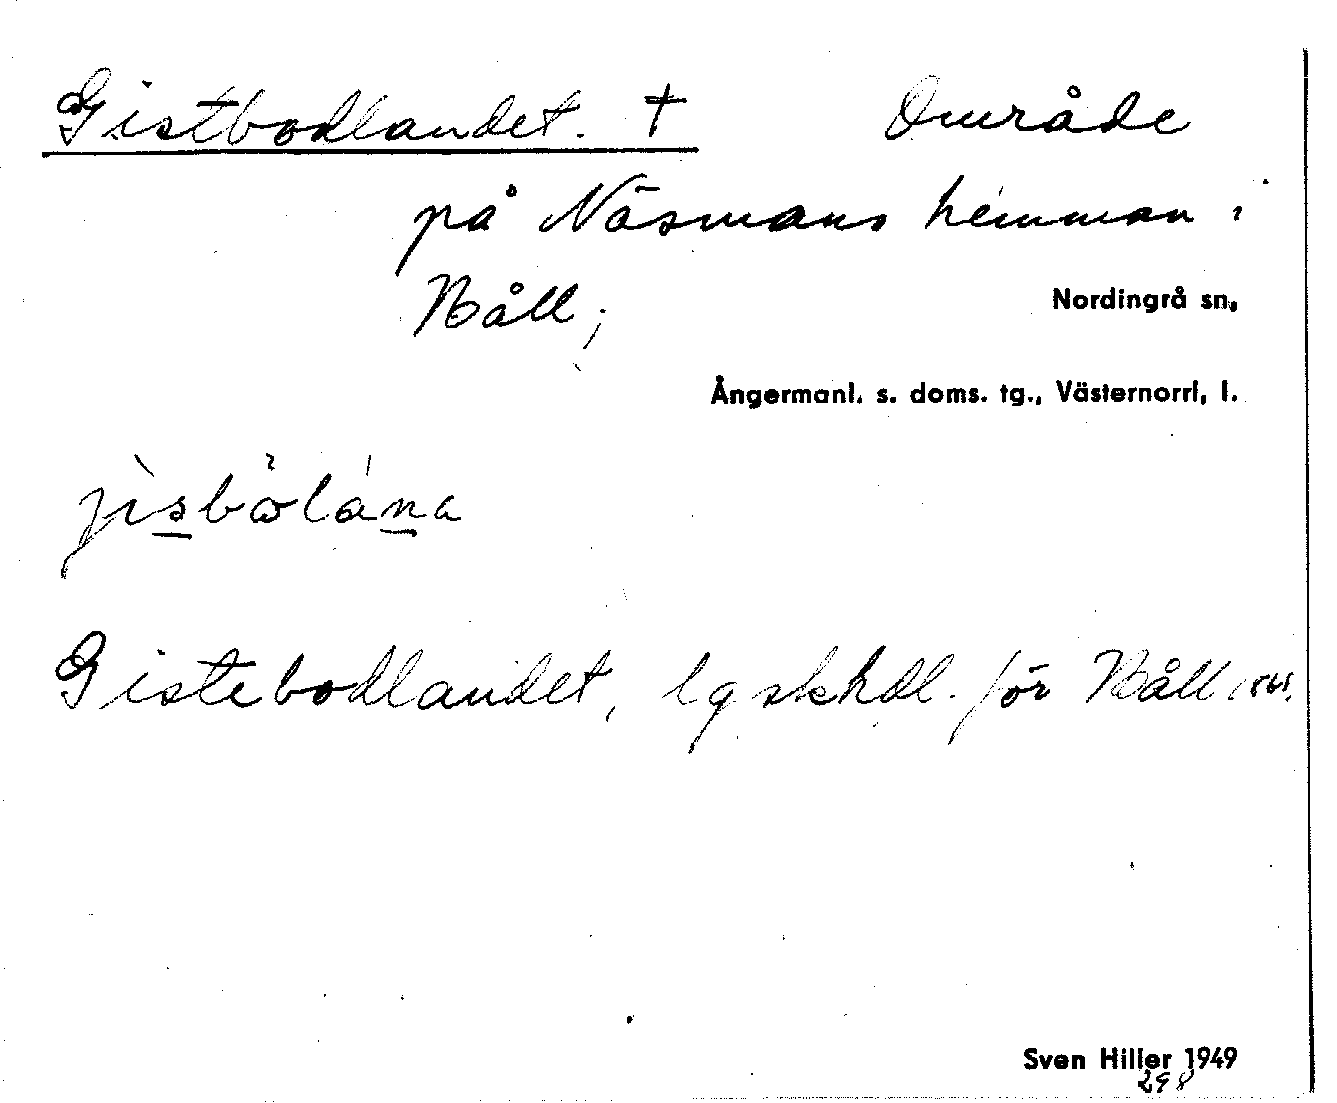 Gistbodlandet. † Område
på Näsmans hemman i
Båll;
Nordingrå sn,
Ångermanl. s. doms. tg., Västernorrl, l.
Gistebodlandet, lgskhdl. för Båll
Sven Hiller 1949
298